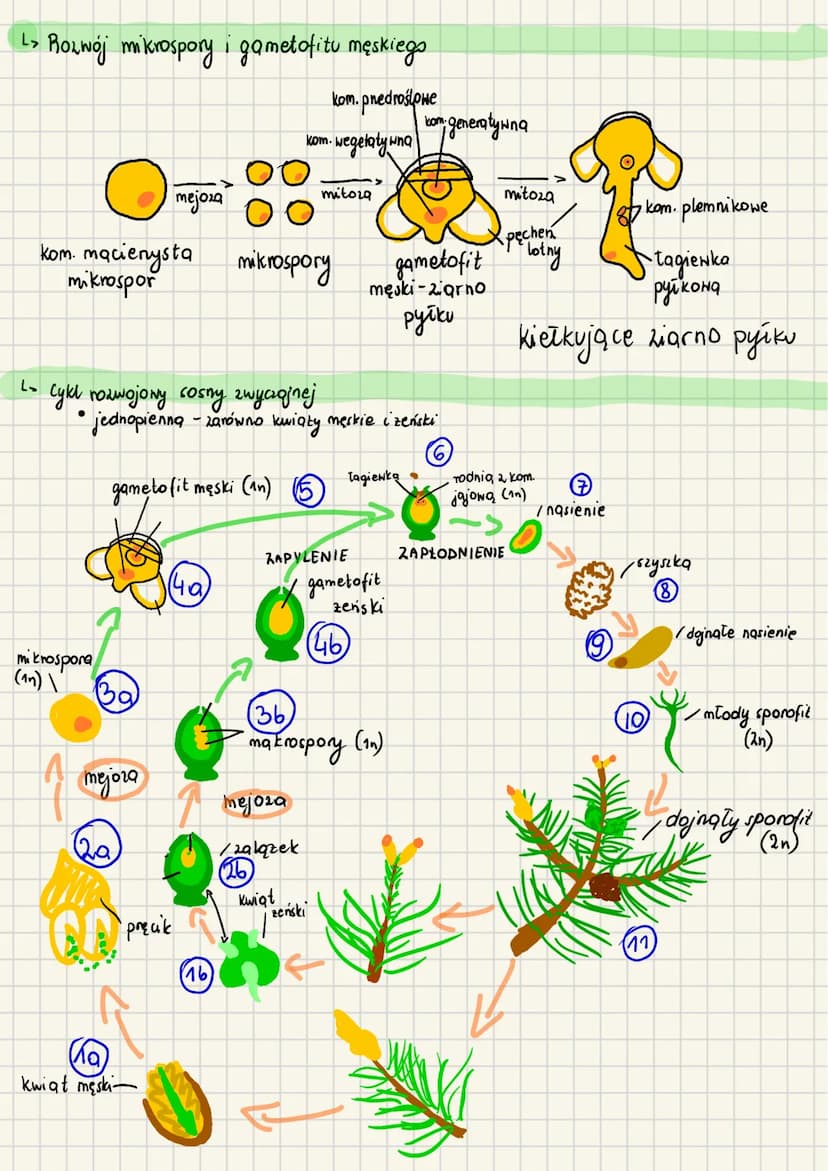 ↳ Rozwój mikrospory i gametofitu męskiego
kom. przedroślowe
kom. generatywna
kom. wegetatywna
mejoza
mitoza
mitoza
kom. plemnikowe
pęcherz
lotny
kom. macierzysta
mikrospor
mikrospory
gametofit
męski-ziarno
pyłku
łagiewka
pyłkowa
kiełkujące ziarno pyłku
↳ Cykl rozwojowy sosny zwyczajnej
• jednopienna - zarówno kwiaty męskie i żeński
6
łagiewka
rodnia z kom.
jajową (1n)
gametofit męski (1n)
5
7
nasienie
ZAPYLENIE
ZAPŁODNIENIE
szyszka
8
4a
gametofit
żeński
4b
9
dojrzałe nasienie
mikrospora
(1n)
3a
3b
makrospory (1n)
10
młody sporofit
(2n)
mejoza
mejoza
dojrzały sporofit
(2n)
2a
zalążek
2b
kwiat
żeński
pręcik
11
1b
1a
kwiat męski